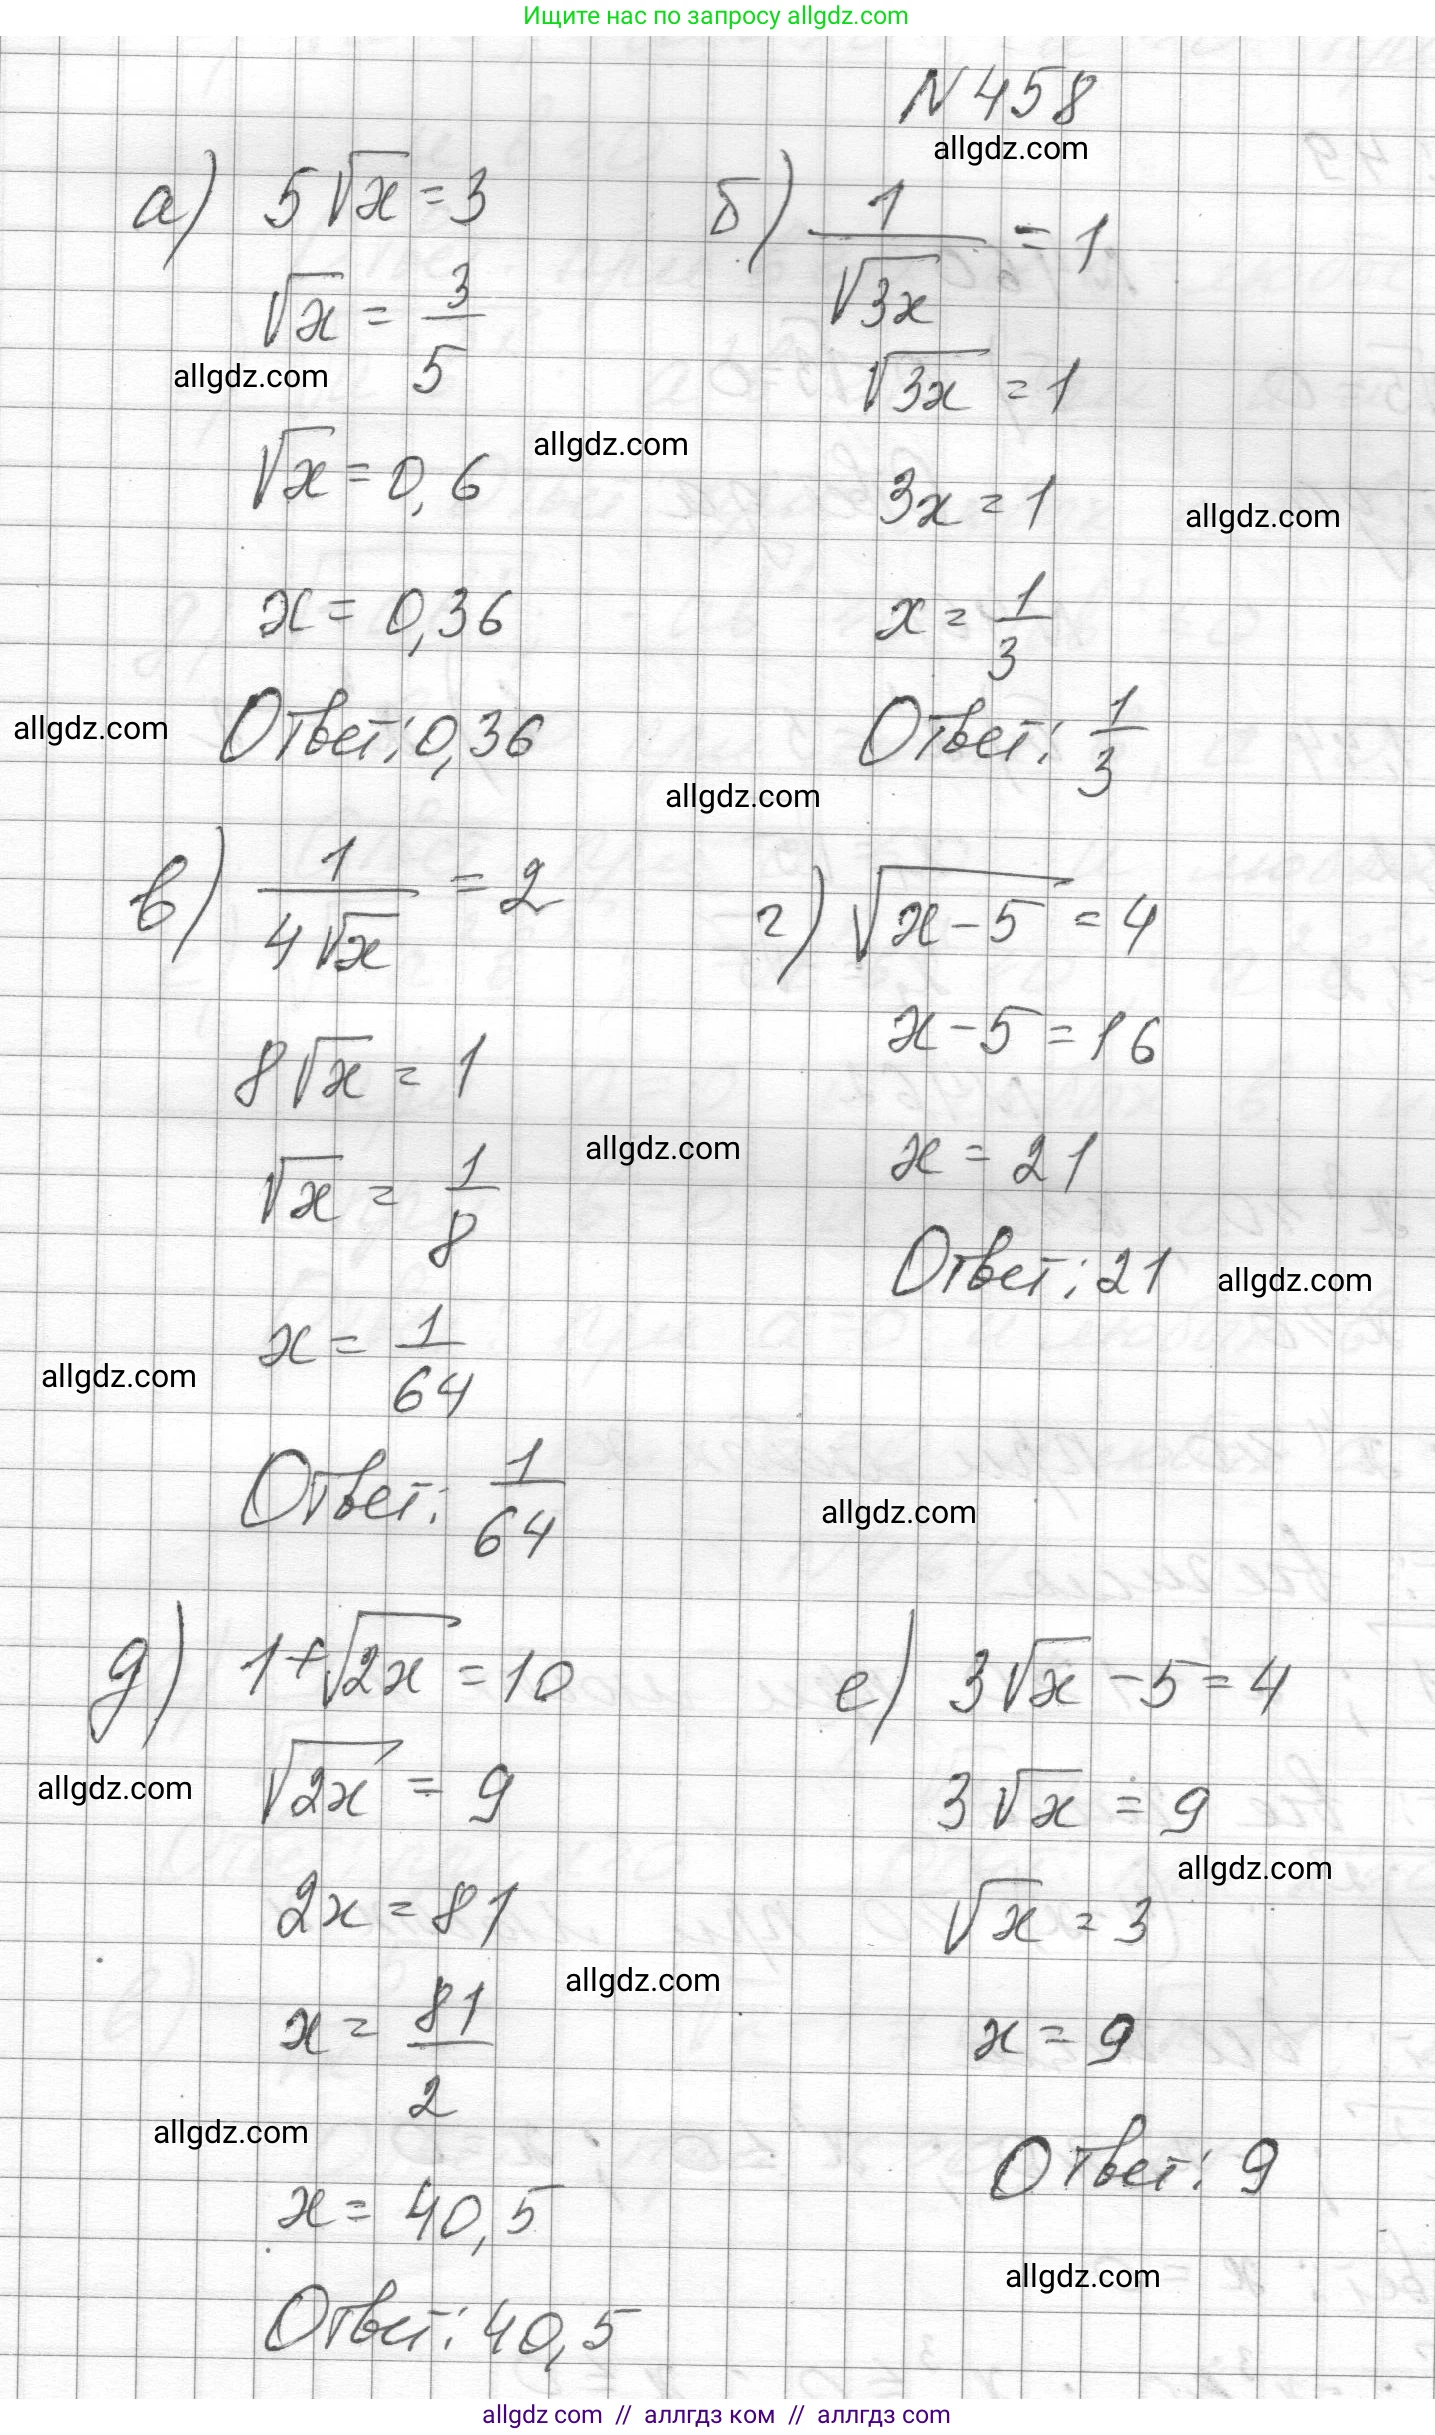 Ищите нас по запросу allgdz.com
N 458
allgdz.com
а) 5√x = 3
√x = 3/5
allgdz.com
√x = 0,6
allgdz.com
x = 0,36
allgdz.com
Ответ: 0,36
б) 1/√3x = 1
√3x = 1
3x = 1
allgdz.com
x = 1/3
Ответ: 1/3
allgdz.com
в) 1/4√x = 2
8√x = 1
√x = 1/8
allgdz.com
x = 1/64
allgdz.com
Ответ: 1/64
г) √x-5 = 4
x - 5 = 16
x = 21
Ответ: 21
allgdz.com
allgdz.com
д) 1+√2x = 10
√2x = 9
allgdz.com
2x = 81
x = 81/2
allgdz.com
allgdz.com
x = 40,5
Ответ: 40,5
е) 3√x - 5 = 4
3√x = 9
allgdz.com
√x = 3
x = 9
Ответ: 9
allgdz.com
allgdz.com // аллгдз ком // аллгдз com